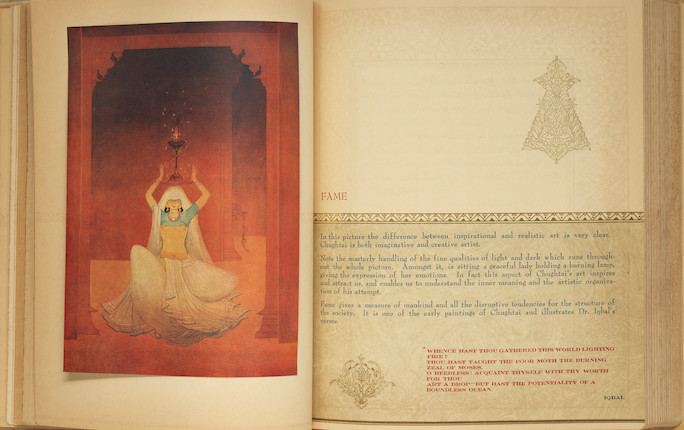 FAME
In this picture the difference between inspirational and realistic art is very clear.
Chughtai is both imaginative and creative artist.
Note the masterly handling of the fine qualities of light and dark which runs through-
out the whole picture. Amongst it, is sitting a graceful lady holding a burning lamp,
giving the expression of her emotions. In fact this aspect of Chughtai's art inspires
and attract us, and enables us to understand the inner meaning and the artistic organiza-
tion of his attempt.
Fame gives a measure of mankind and all the disruptive tendencies for the structure of
the society. It is one of the early paintings of Chughtai and illustrates Dr. Iqbal's
verse.
"WHENCE HAST THOU GATHERED THIS WORLD LIGHTING
FIRE?
THOU HAST TAUGHT THE POOR MOTH THE BURNING
ZEAL OF MOSES.
O HEEDLESS! ACQUAINT THYSELF WITH THY WORTH
FOR THOU
ART A DROP—BUT HAST THE POTENTIALITY OF A
BOUNDLESS OCEAN.
IQBAL